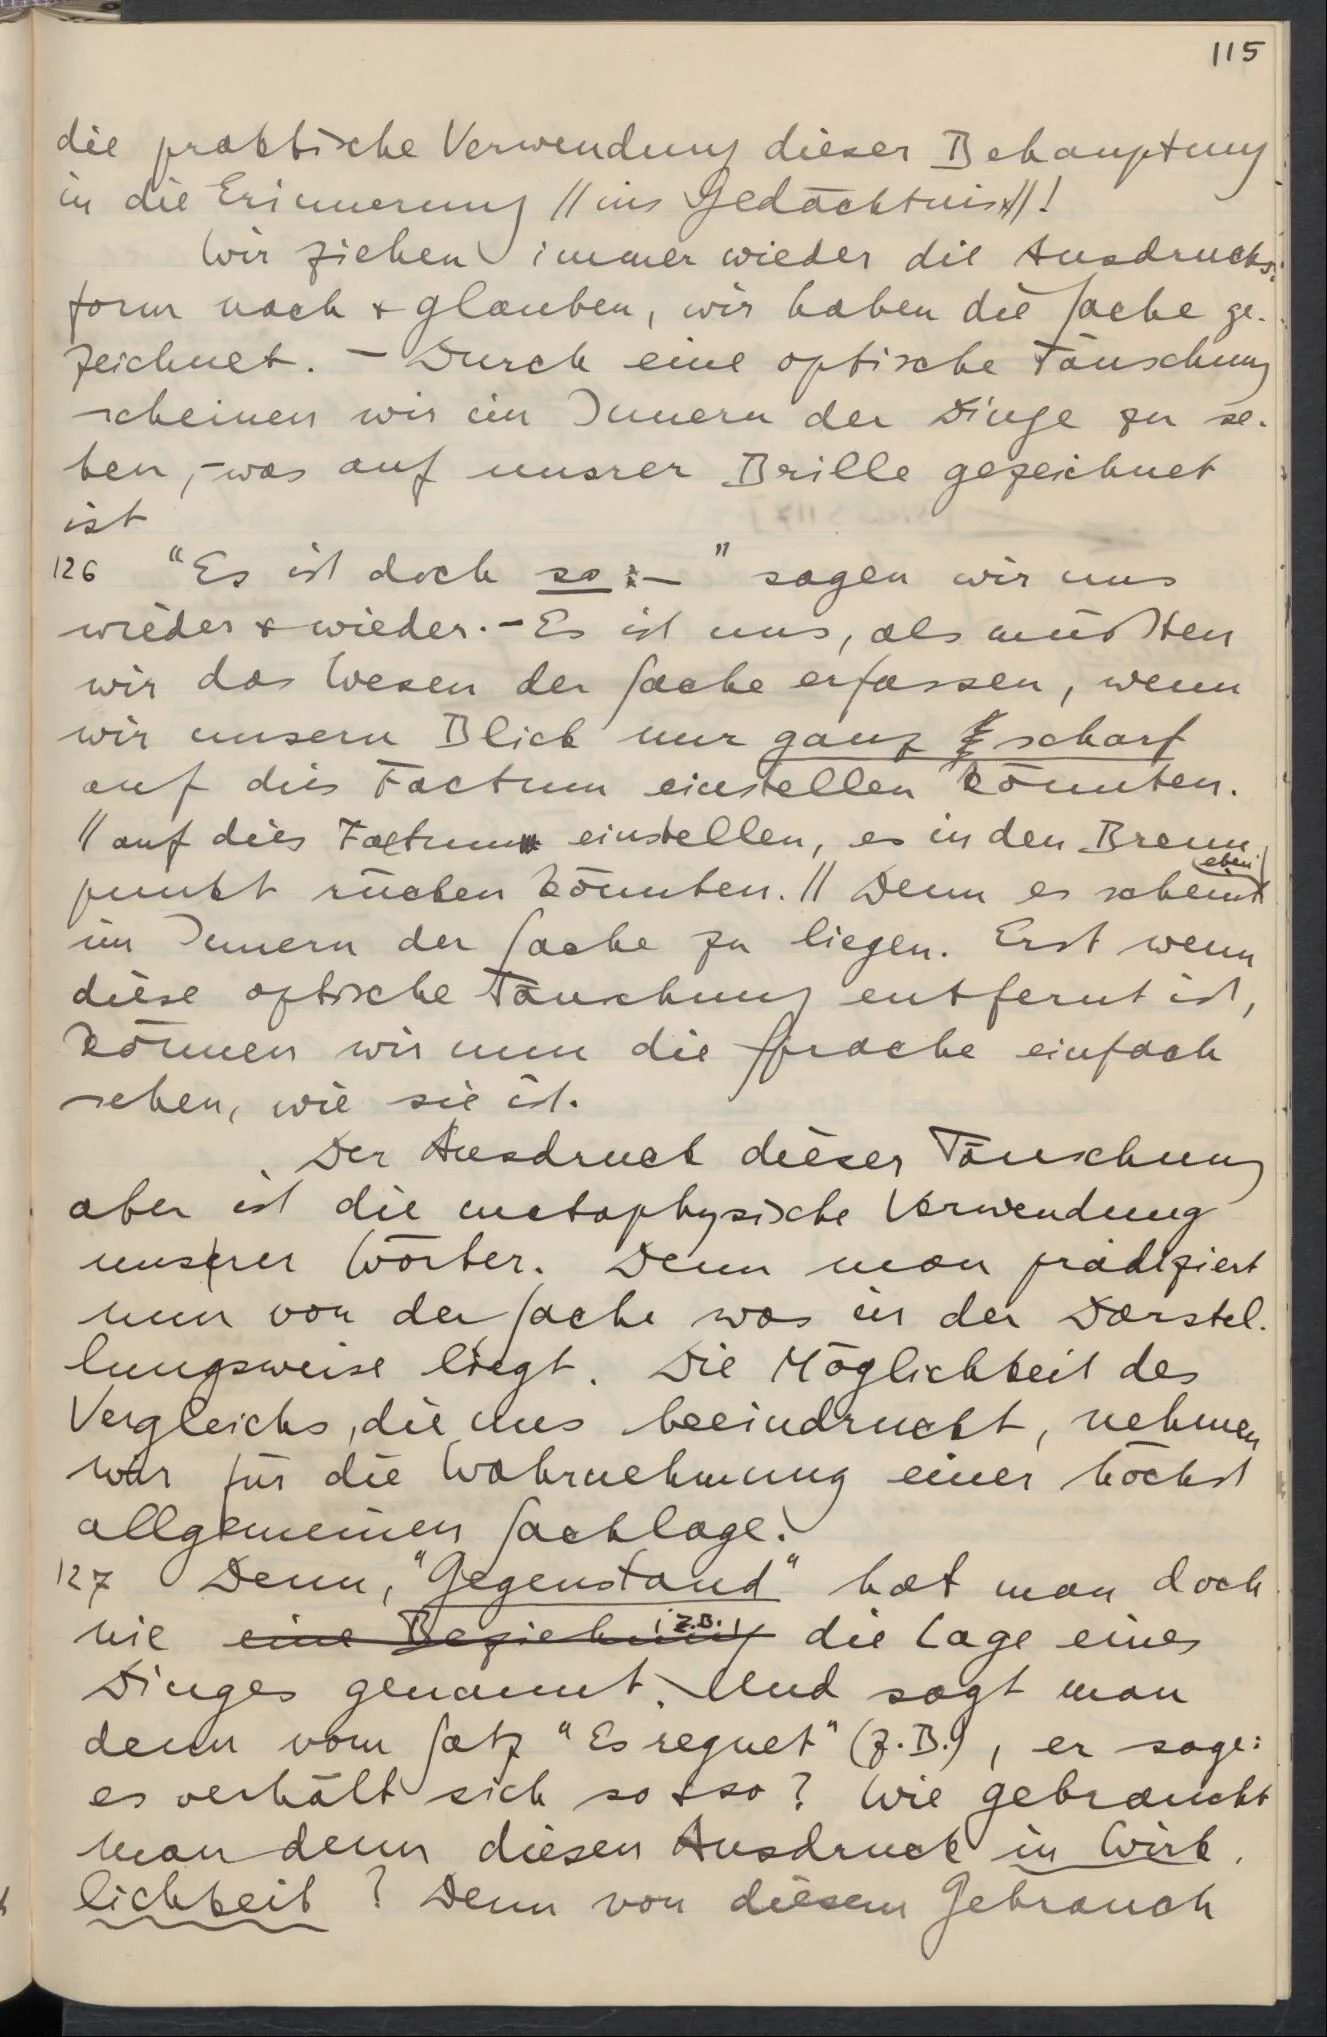 115
die praktische Verwendung dieser Behauptung
in die Erinnerung // ins Gedächtnis //!
Wir ziehen immer wieder die Ausdrucks-
form nach & glauben, wir haben die Sache ge-
zeichnet. – Durch eine optische Täuschung
scheinen wir im Innern der Dinge zu se-
hen, – was auf unsrer Brille gezeichnet
ist
126 "Es ist doch so: – " sagen wir uns
wieder & wieder. – Es ist uns, als müßten
wir das Wesen der Sache erfassen, wenn
wir unsern Blick nur ganz scharf
auf dies Factum einstellen könnten.
// auf dies Factum einstellen, es in den Brenn-
eben
punkt rücken könnten. // Denn es scheint
im Innern der Sache zu liegen. Erst wenn
diese optische Täuschung entfernt ist,
können wir nun die Sprache einfach
sehen, wie sie ist.
Der Ausdruck dieser Täuschung
aber ist die metaphysische Verwendung
unsrer Wörter. Denn man prädiziert
nun von der Sache was in der Darstel-
lungsweise liegt. Die Möglichkeit des
Vergleichs, die uns beeindruckt, nehmen
wir für die Wahrnehmung einer höchst
allgemeinen Sachlage.
127 Denn, "Gegenstand" hat man doch
z.B.
nie eine Beziehung die Lage eines
Dinges genannt. Und sagt man
denn vom Satz "Es regnet" (z.B.), er sage:
es verhält sich so & so? Wie gebraucht
man denn diesen Ausdruck in Wirk-
lichkeit? Denn von diesem Gebrauch